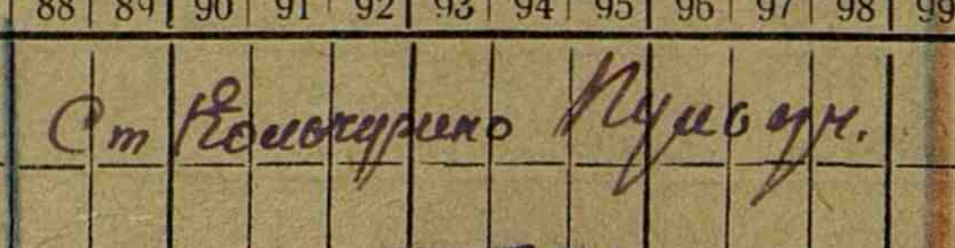 88 89 90 91 92 93 94 95 96 97 98 99
Ст Кольчугино